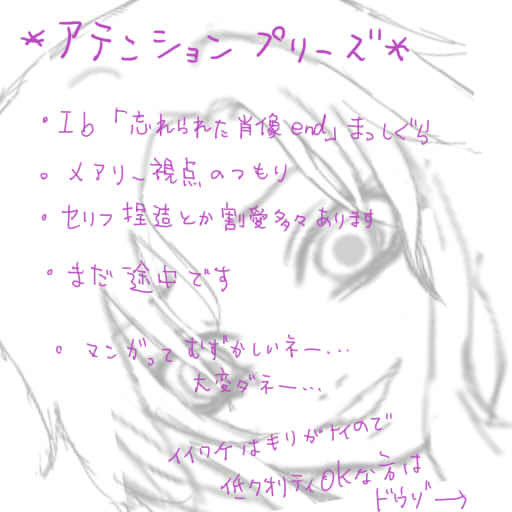 *アテンション プリーズ*
・Ib「忘れられた肖像end」まっしぐら
。メアリー視点のつもり
・セリフ捏造とか割愛多々あります
・まだ途中です
。マンガってむずかしいネー…
大変ダネー…
イイワケはもりがナイので
低クオリティOKな方は
ドウゾ→